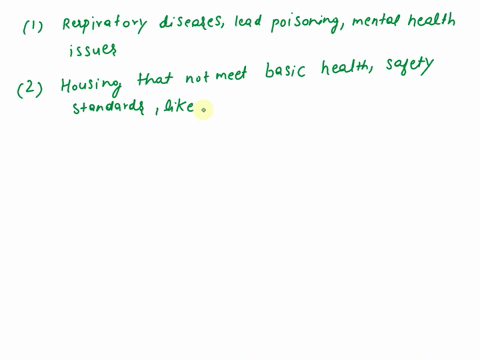 (1) Respiratory diseases, lead poisoning, mental health
issues
(2) Housing that not meet basic health, safety
standards, like